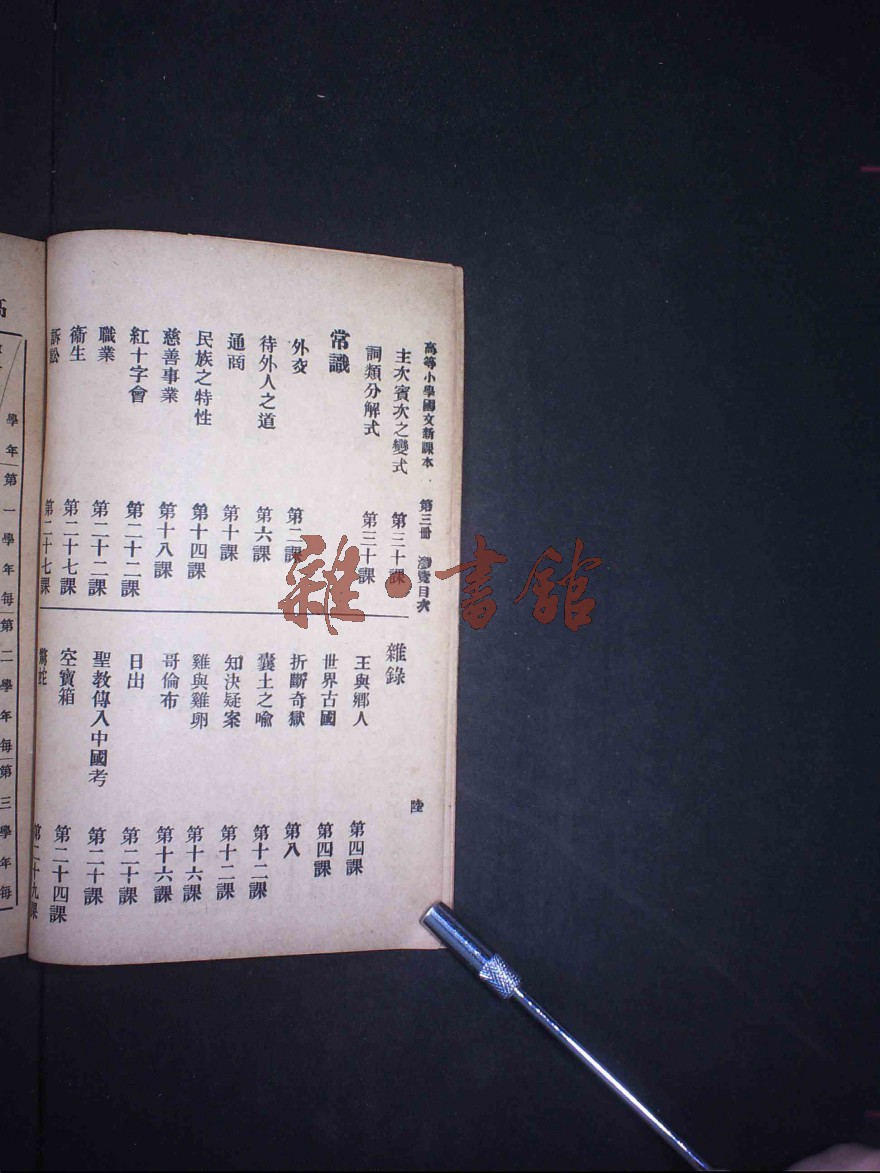 高等小學國文新課本 第三冊 瀏覽目次 陸
主次賓次之變式 第三十課
詞類分解式 第三十課
常識
外交 第二課
待外人之道 第六課
通商 第十課
民族之特性 第十四課
慈善事業 第十八課
紅十字會 第二十二課
職業 第二十二課
衛生 第二十七課
訴訟 第二十七課
雜錄
王與鄉人 第四課
世界古國 第四課
折斷奇獄 第八
囊土之喻 第十二課
知決疑案 第十二課
雞與雞卵 第十六課
哥倫布 第十六課
日出 第二十課
聖教傳入中國考 第二十課
空寶箱 第二十四課
第二十九課
學年
第一學年每
第二學年每
第三學年每
雜·書館